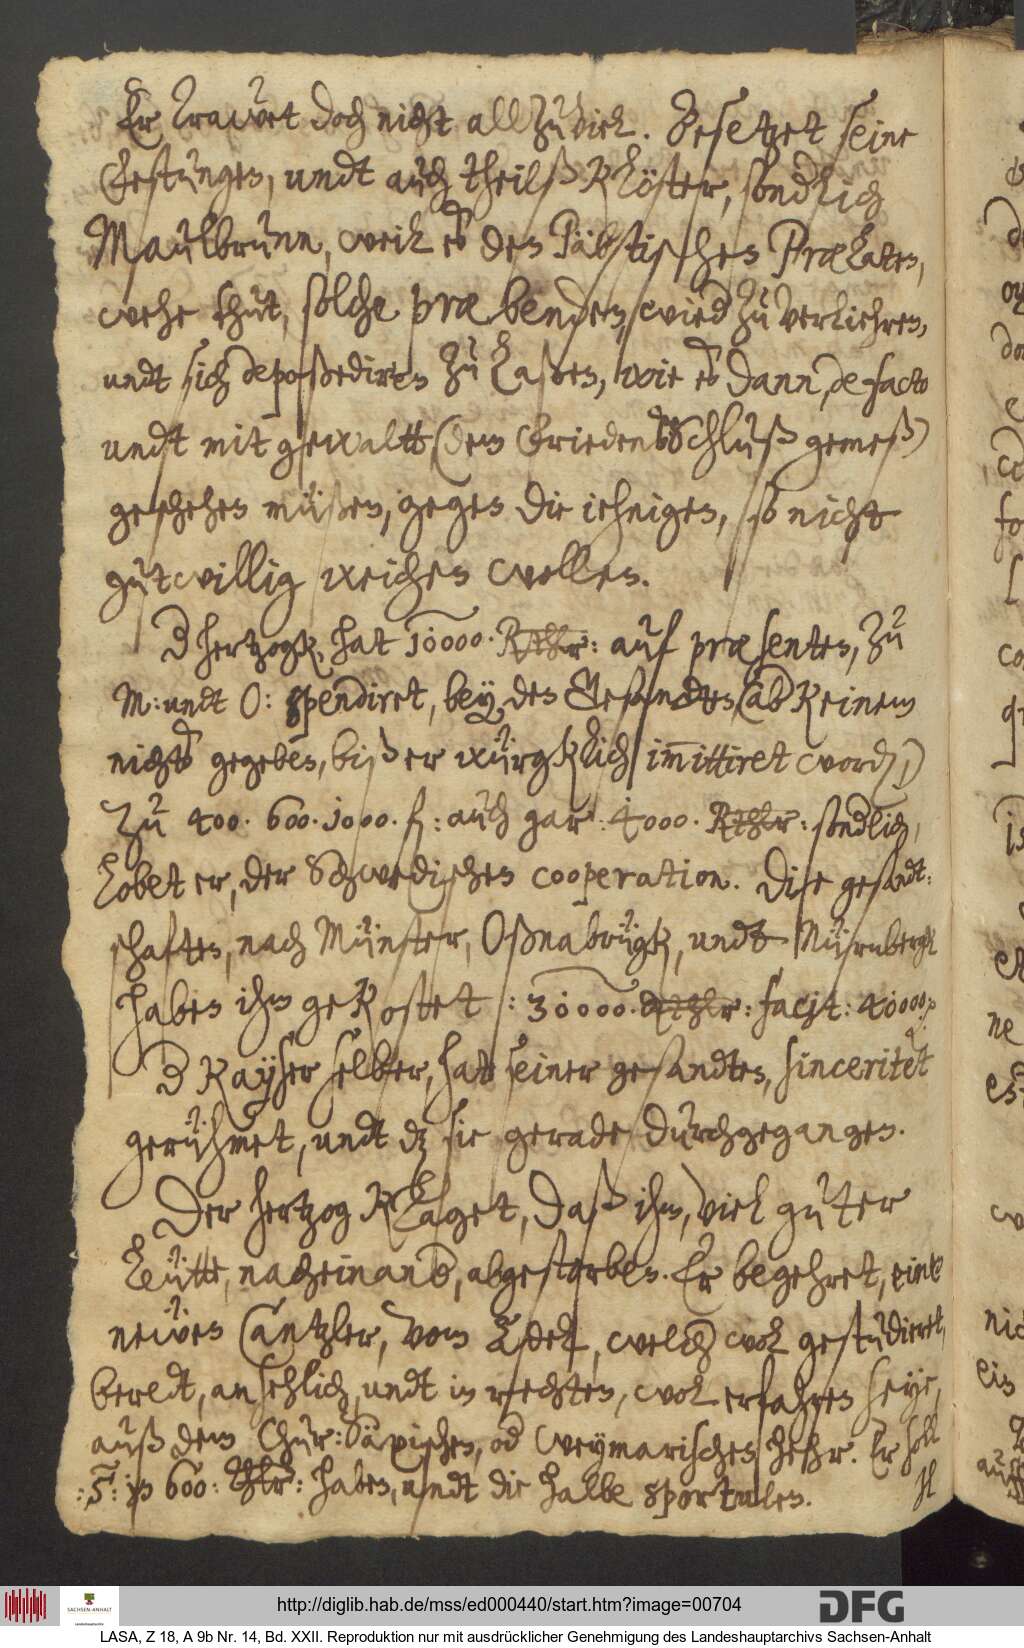 Er trawet doch nicht all zu viel. Besetzet seine
Vestungen, undt auch theilß Klöster, sondlich
Maulbrunn, weil es den Päbstischen Prælaten,
wehe thut, solche præbenden, wied zu verliehren,
undt sich depoßediren zu laßen, wie es dann, de facto
undt mit gewaltt (dem Friedensschluß gemeß)
geschehen müßen, gegen die iehnigen, so nicht
gutwillig weichen wollen.
D hertzogk, hat 10000. Rthlr: auf præsenten, zu
M: undt O: spendiret, bey den Gesandten, (ab Keinem
nichts gegeben, biß er würgklich immittiret word,)
zu 400. 600. 1000. f: auch gar: 4000. Rthlr: sondlich,
lobet er, der Schwedischen cooperation. Dise gesandt:
schaften, nach Münster, Oßnabrügk, undt Nürnbergk
haben ihm geKostet: 30000. Rthlr: facit: 40000
D Kayser selber, hat seiner gesandten, sinceritet
gerühmet, undt dz sie gerade durchgegangen.
Der hertzog Klaget, daß ihm, viel guter
Leütte, nacheinand, abgestorben. Er begehret, einen
newen Cantzler, vom Adel, welch wol gestudieret,
beredt, ansehlich, undt in rechten, wol erfahren seye,
auß dem Chur: Säxischen, od Weymarischen hehr. Er soll
:5: in 600: thlr: haben, undt die halbe sportulen.
http://diglib.hab.de/mss/ed000440/start.htm?image=00704
DFG
SACHSEN-ANHALT
LASA, Z 18, A 9b Nr. 14, Bd. XXII. Reproduktion nur mit ausdrücklicher Genehmigung des Landeshauptarchivs Sachsen-Anhalt